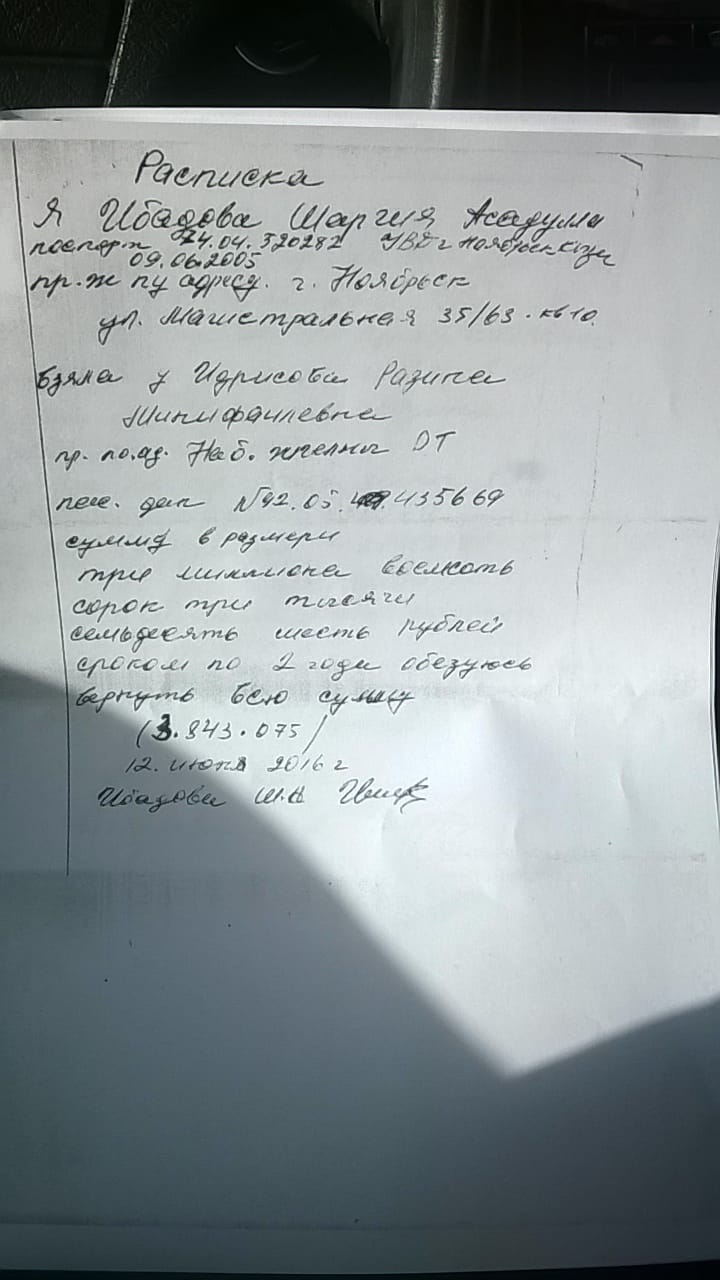 Расписка
Я Ибадова Шаргия Асадула
паспорт 74.04.320282 УВД г Ноябрьск кизи
09.06.2005
пр.ж пу адресу. г. Ноябрьск
ул. Магистральная 35/63. кв 10.
взяла у Идрисова Разина
Минифаилевна
пр. по.ад. Наб. челны ДТ
дан №92.05. 435669
сумму в размери
три миллиона восемсоть
сорок три тысячи
семьдесять шесть рублей
сроком по 2 года обезуюсь
вернуть всю сумму
(3.843.075)
12. июня 2016 г
Ибадова Ш.А